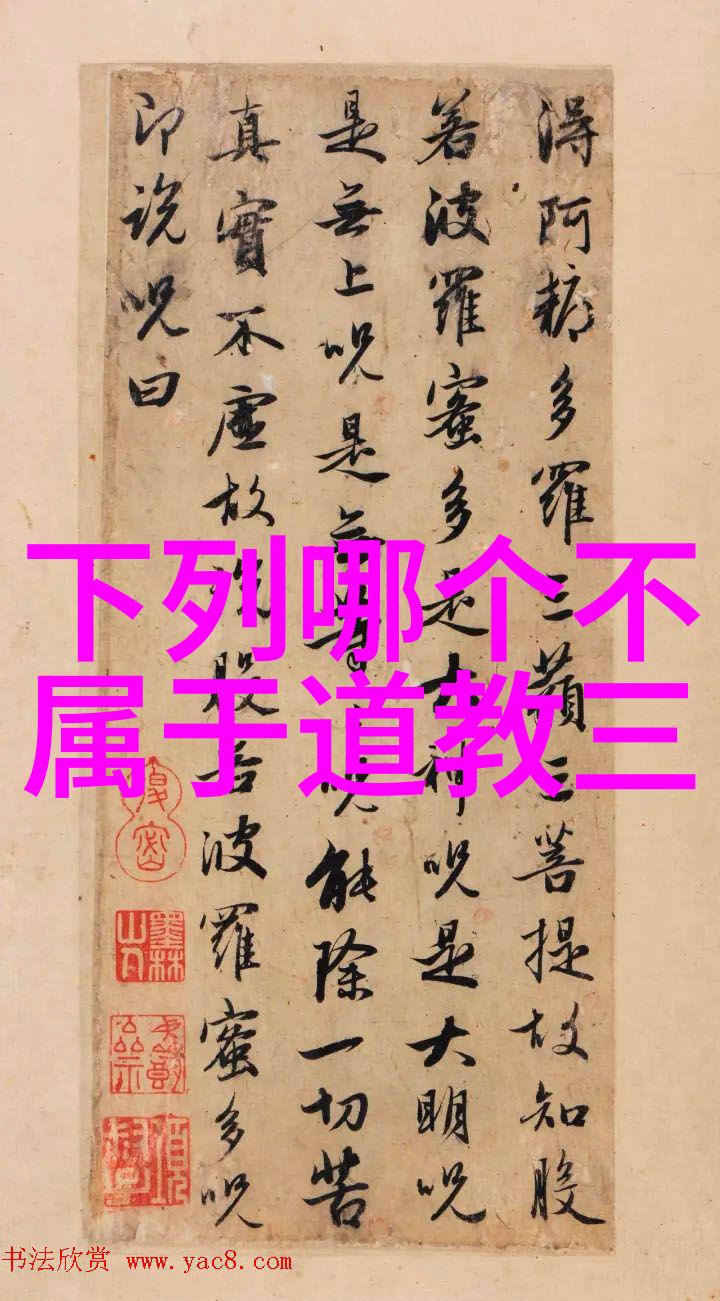 下列哪个不
属于道教三
得阿耨多羅三藐三菩提故知般
若波羅蜜多是大神呪是大明呪
是無上呪是無等等呪能除一切苦
真實不虛故說般若波羅蜜多呪
即說呪曰
墨林山人
书法欣赏 www.yac8.com